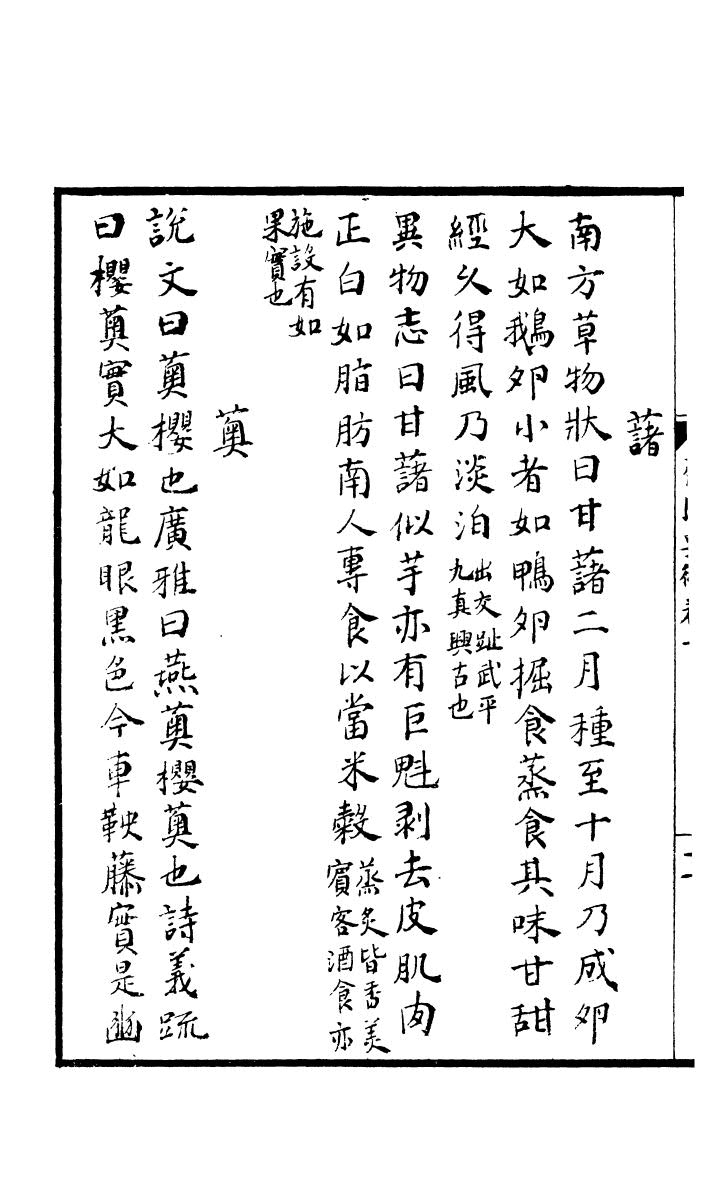 藷
南方草物狀曰甘藷二月種至十月乃成卵
大如鵝卵小者如鴨卵掘食蒸食其味甘甜
經久得風乃淡泊出交趾武平
九真興古也
異物志曰甘藷似芋亦有巨魁剥去皮肌肉
正白如脂肪南人專食以當米糓蒸炙皆香美
賓客酒食亦
施設有如
果實也
薁
說文曰薁櫻也廣雅曰燕薁櫻薁也詩義疏
曰櫻薁實大如龍眼黑色今車鞅藤實是豳